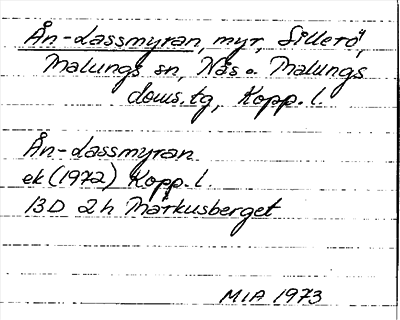 Ån-Lassmyran, myr, Sillerö,
Malungs sn, Nås o. Malungs
doms.tg, Kopp. l.
Ån-Lassmyran
ek (1972) Kopp. l.
13D 2h Markusberget
MIA 1973